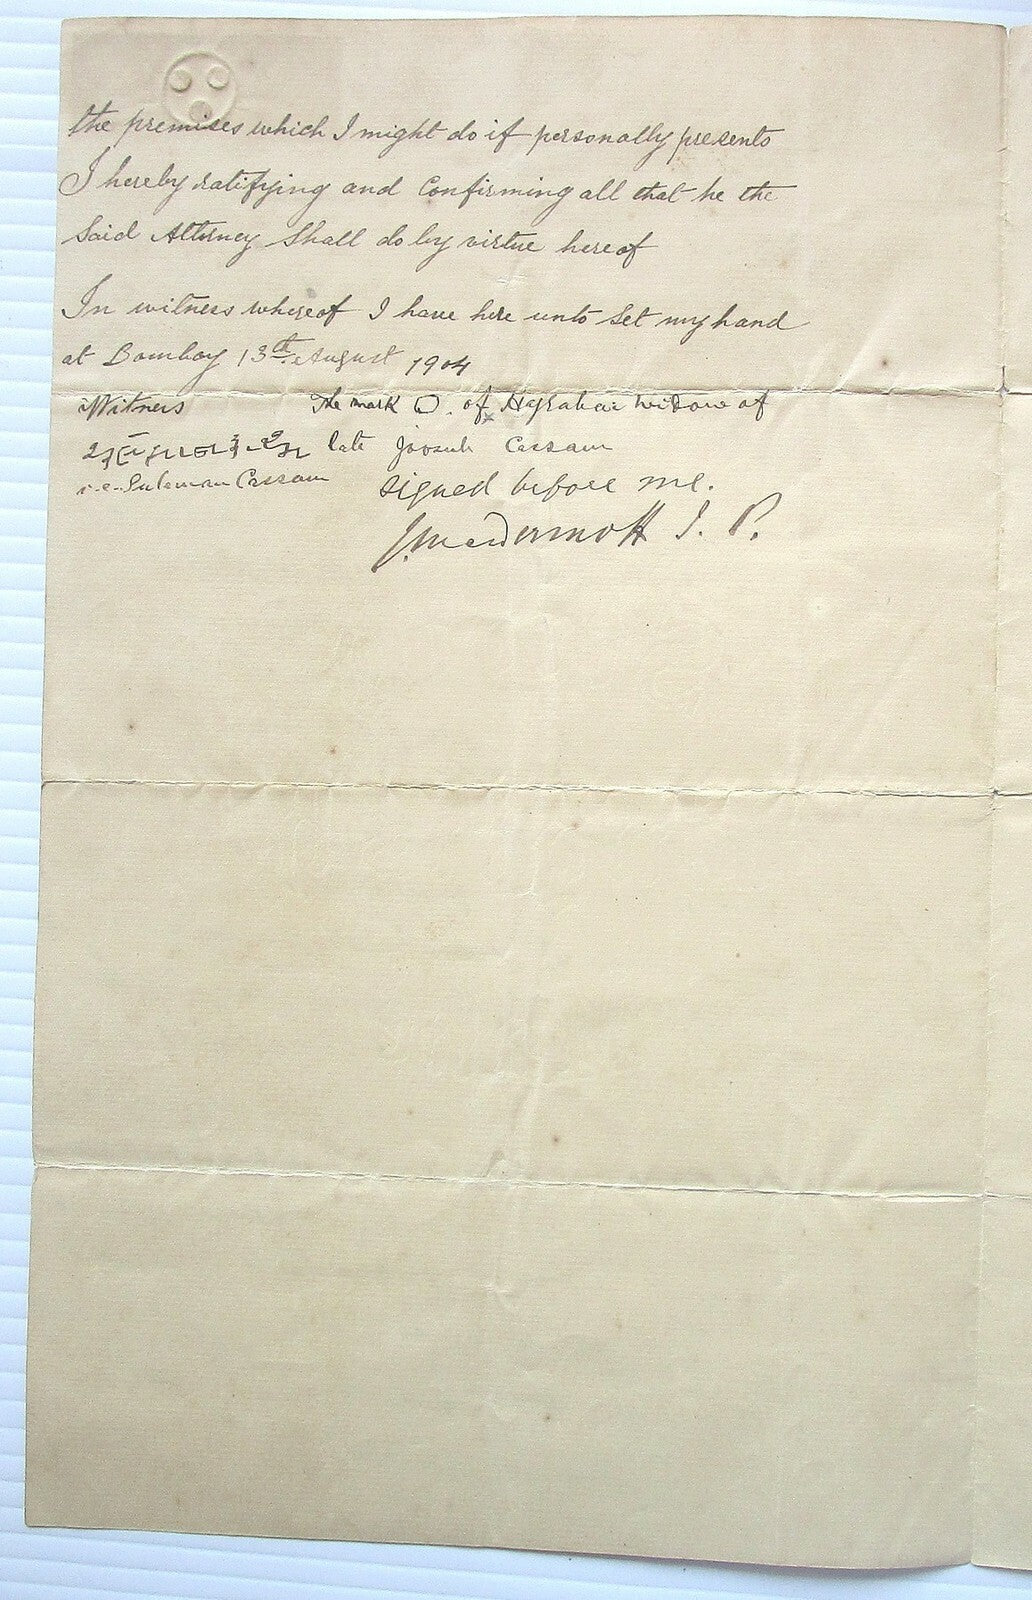 the premises which I might do if personally presents
I hereby ratifying and Confirming all that he the
Said Attorney Shall do by virtue hereof
In witness whereof I have here unto Set my hand
at Bombay 13th August 1904
Witness The mark of Hyrabai widow of
late Joosub Cassam
i.e. Suleman Cassam signed before me.
J. McDermott J. P.